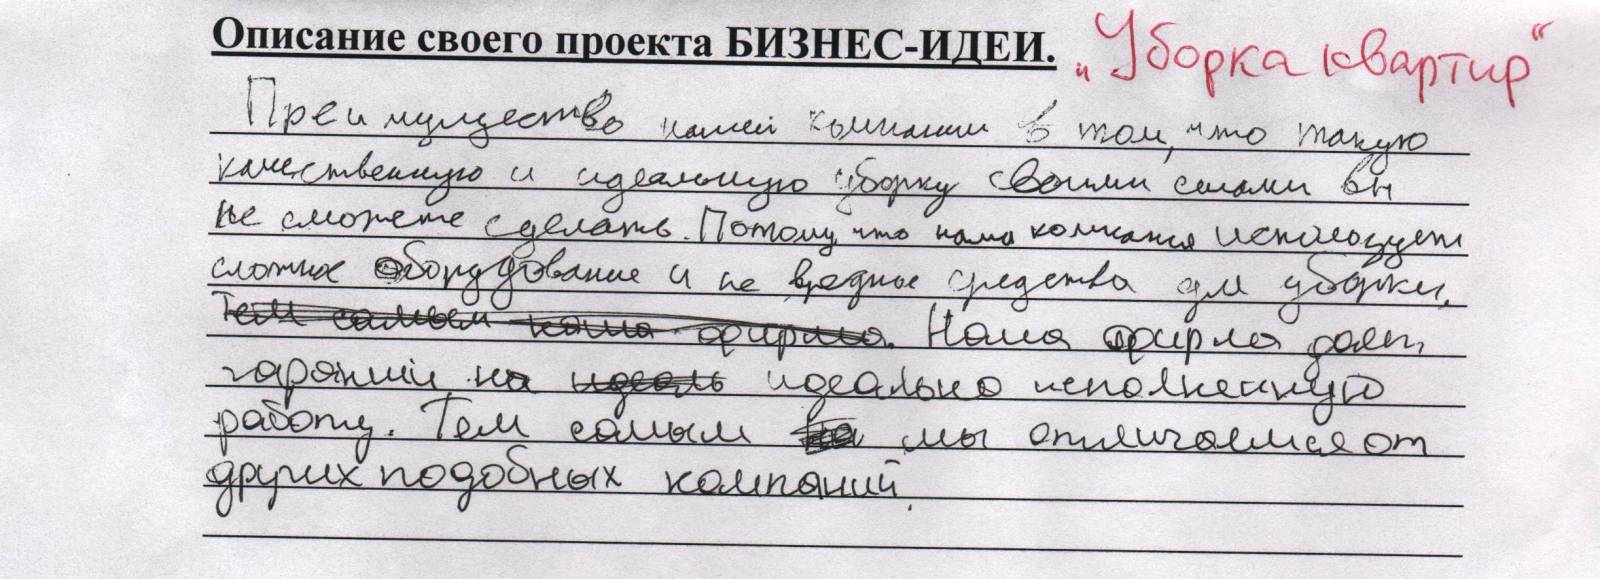 Описание своего проекта БИЗНЕС-ИДЕИ. „Уборка квартир“
Преимущество нашей компании в том, что такую
качественную и идеальную уборку своими силами вы
не сможете сделать. Потому что наша компания использует
сложное оборудование и не вредные средства для уборки.
Тем самым наша фирма. Наша фирма даёт
гарантии на идеаль идеально исполненную
работу. Тем самым на мы отличаемся от
других подобных компаний.